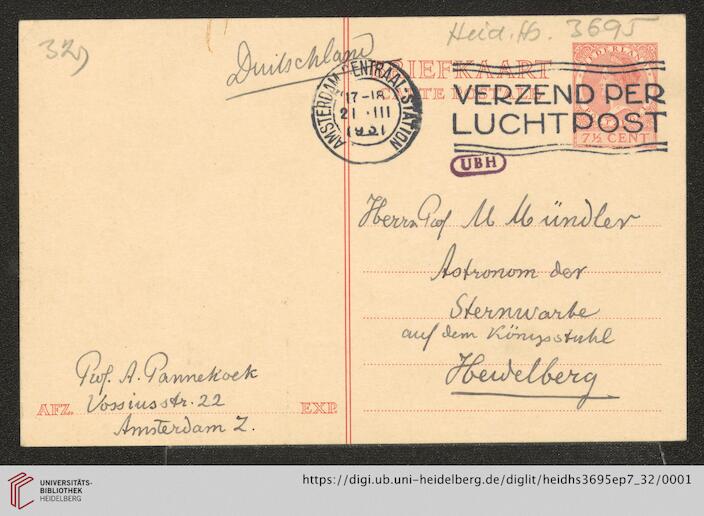 32)
Duitschland
Heid. Hs. 3695
BRIEFKAART
CARTE POSTALE
NEDERLAND
7½ CENT
AMSTERDAM CENTRAAL-STATION
17-18
21 III
1931
VERZEND PER
LUCHTPOST
UBH
Herrn Prof M Mündler
Astronom der
Sternwarte
auf dem Königsstuhl
Heidelberg
Prof. A. Pannekoek
Vossiusstr. 22
Amsterdam Z.
AFZ.
EXP.
UNIVERSITÄTS-
BIBLIOTHEK
HEIDELBERG
https://digi.ub.uni-heidelberg.de/diglit/heidhs3695ep7_32/0001